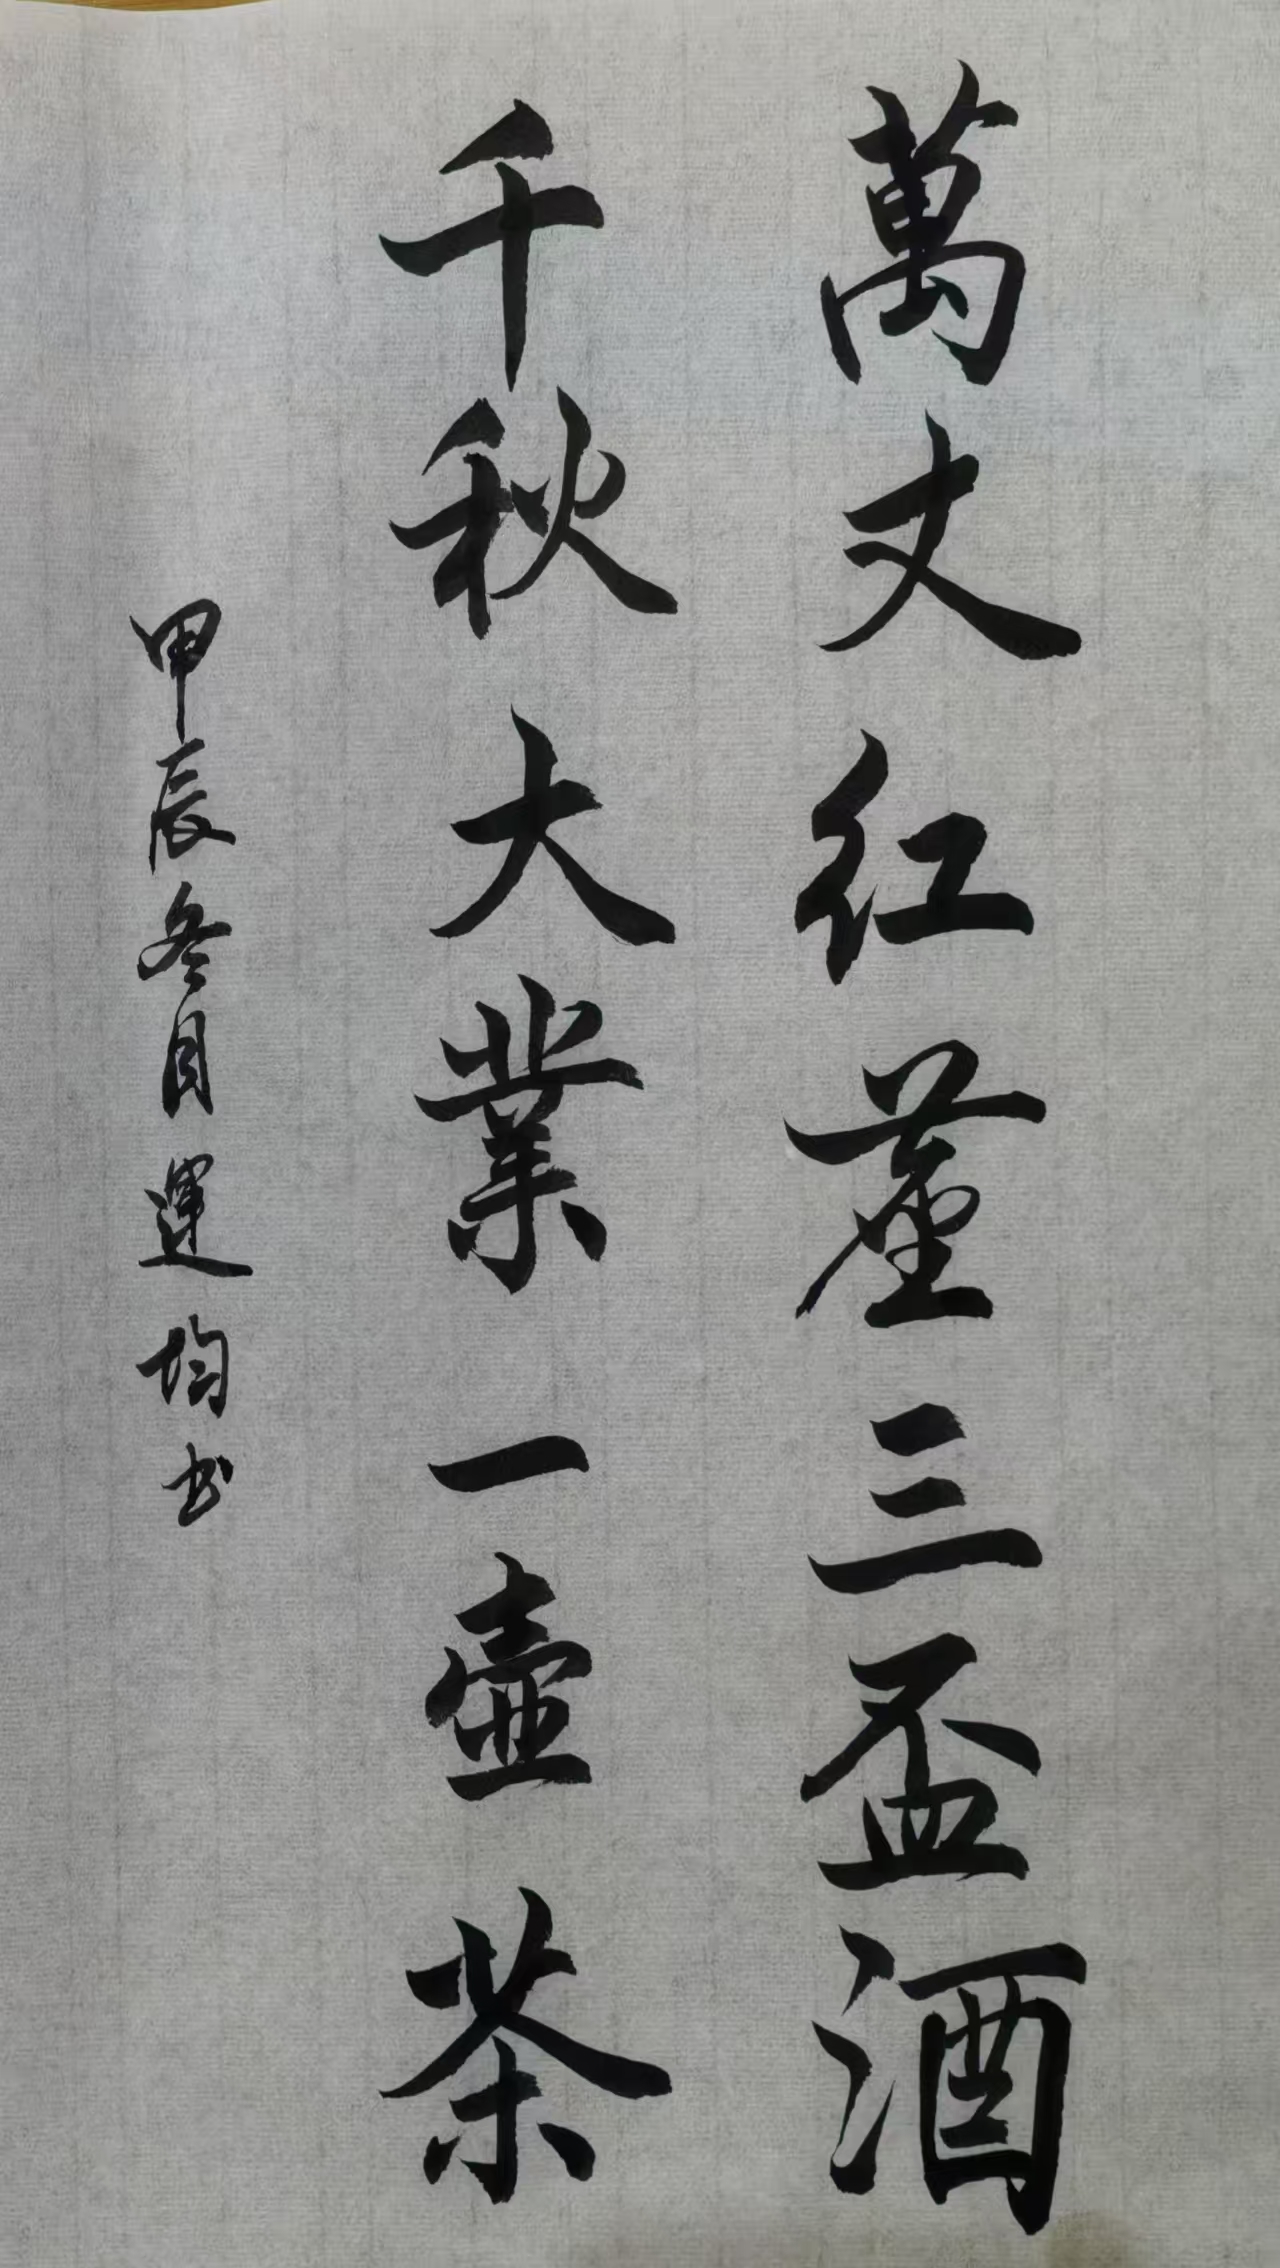 萬丈红塵三盃酒
千秋大業一壺茶
甲辰冬月運均书